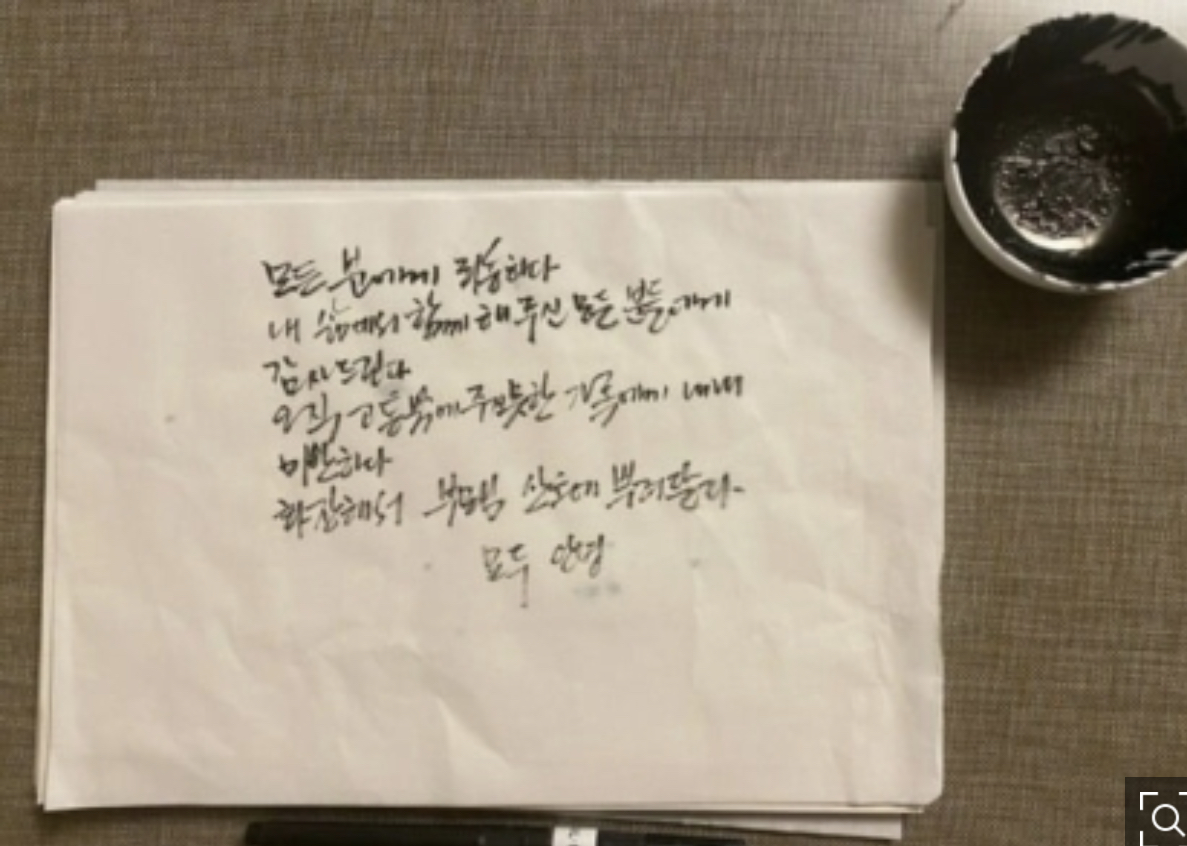 모든 분에게 죄송하다
내 삶에서 함께 해 주신 모든 분들에게
감사드린다
오직 고통밖에 주지 못한 가족에게 내내
미안하다
화장해서 부모님 산소에 뿌려달라.
모두 안녕